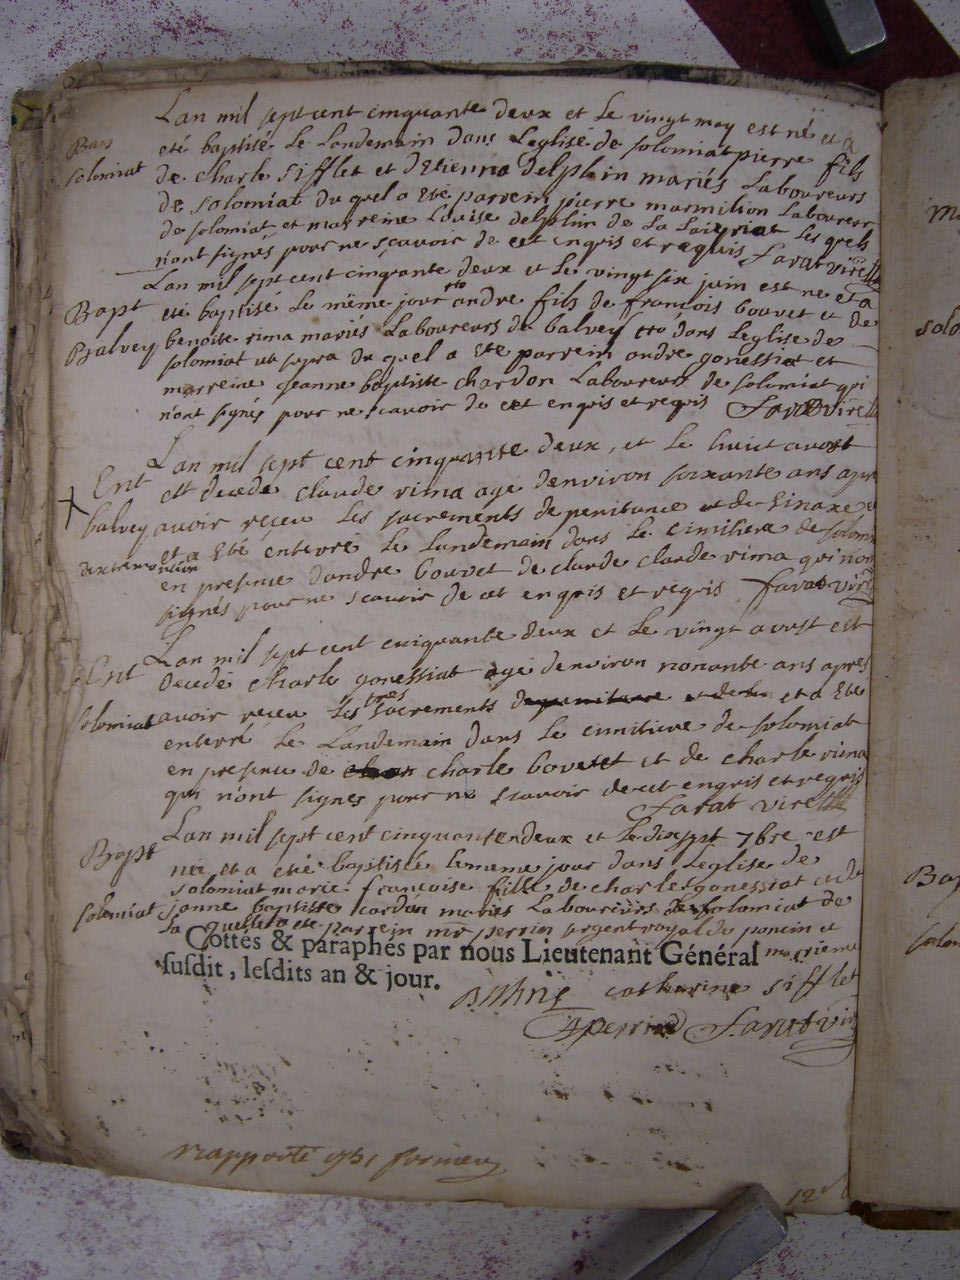 Lan mil sept cent cinquante deux et le vingt may est né et a
Bap
eté baptisé le Landemain dans Leglise de solomiat pierre fils
solomiat
de charle sifflet et dEtienna delphin mariés Laboureurs
de solomiat du quel a Eté parrein pierre marmilion Laboureur
de solomiat et marreine Louise delphin de La les quels
n'ont signés pour ne sçavoir de cet enquis et requis farat vire
Lan mil sept cent cinquante deux et le vingt six juin est né et a
Bapt
eté baptisé le même jour andre fils de francois bouvet et de
Balvey
benoite rima mariés Laboureurs de balvey dans Leglise de
solomiat ut supra du quel a Eté parrein andre gonessiat et
marreine jeanne baptiste chardon Laboureurs de solomiat qui
n'ont signés pour ne scavoir de cet enquis et requis farat vire
Lan mil sept cent cinquante deux, et le huict avost
Ent
est decedé claude rima agé denviron soixante ans apres
balvey
avoir reçeu les sacrements de penitance et de
dextremonction
et a Eté enterré le Landemain dans le cimitiere de solomi
en presence dandre bouvet de claude claude rima qui non
signés pour ne scavoir de cet enquis et requis farat vire
Lan mil sept cent cinquante deux et le vingt avost est
Ent
decedé charle gonessiat agé denviron nonante ans apres
solomiat
avoir reçeu les sacrements et a Eté
enterré le Landemain dans le cimitiere de solomiat
en presence de charle bouvet et de charle rima
qui n'ont signes pour ne scavoir de cet enquis et requis
farat vire
Lan mil sept cent cinquante deux et le dix sept 7bre est
Bapt
née et a eté baptisée le meme jour dans Leglise de
solomiat marie francoise fille de charle gonessiat et de
solomiat
janne baptiste cardon mariés Laboureurs de solomiat de
la quelle a eté parrein mr perrin sergent royal de poncin et
Cottés & paraphés par nous Lieutenant Général
marriene
susdit, lesdits an & jour.
catharine sifflet
perrin farat vir
rapporté 1751
12